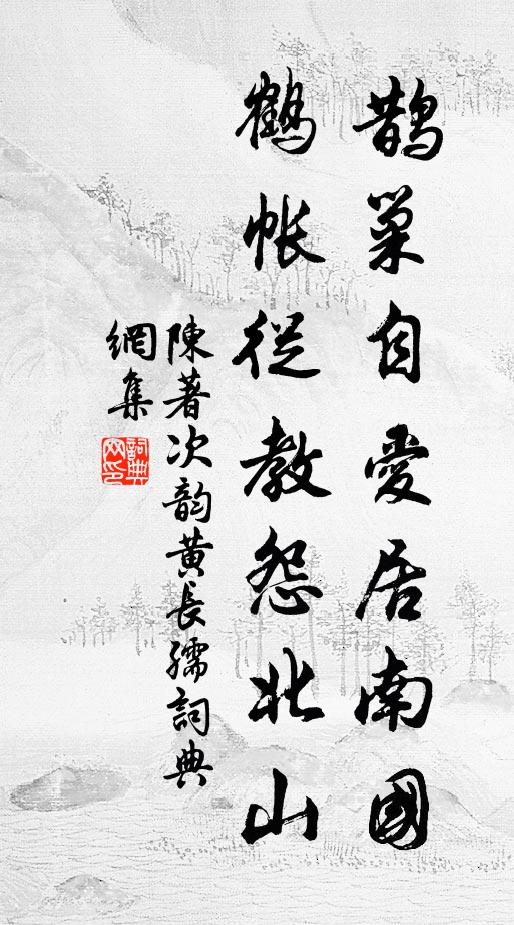 鵲巢自愛居南國
鶴帳從教怨北山
陳著次韵黃長孺詞典
網集
詞典
网印